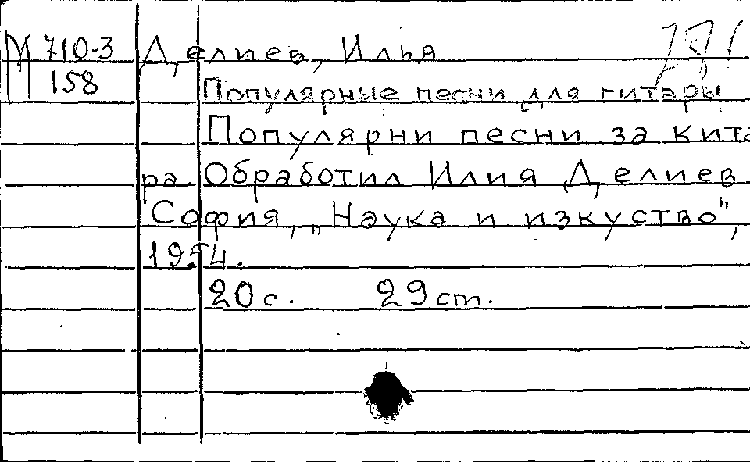 М 710-3 Делиев, Илья
158 Популярные песни для гитары
Популярни песни за кита
ра. Обработил Илия Делиев.
София, „Наука и изкуство",
1954.
20 с. 29 ст.